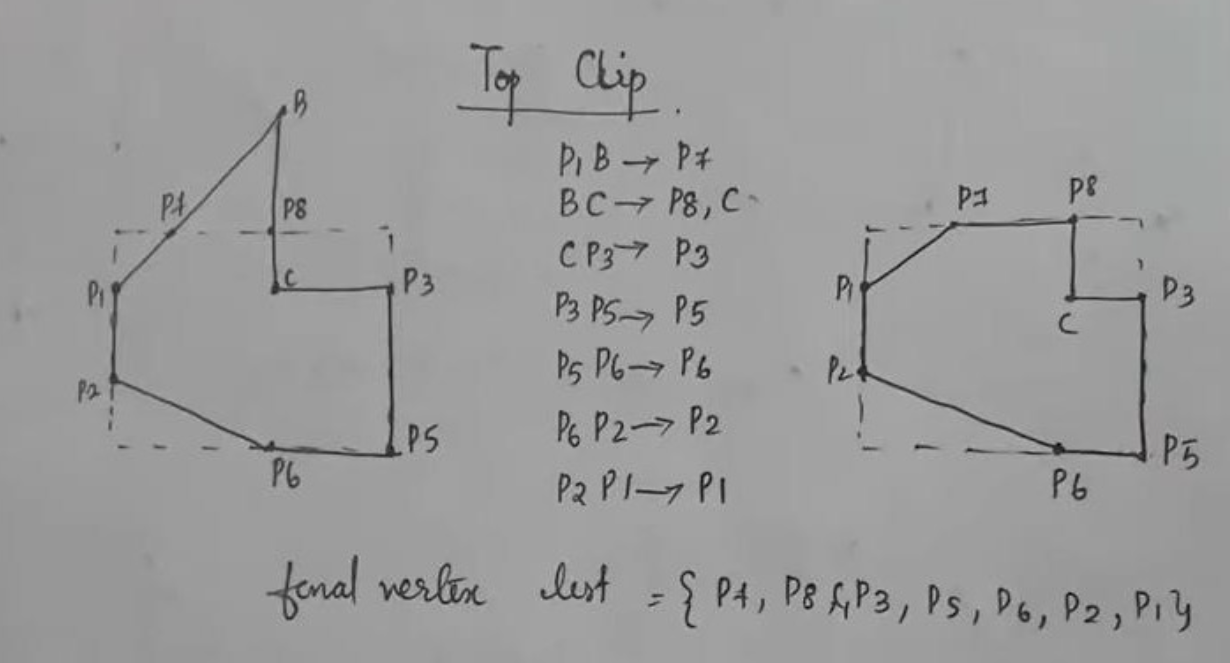 Top Clip
B
P7
P8
P1
C
P3
P2
P5
P6
P1 B → P7
B C → P8, C
C P3 → P3
P3 P5 → P5
P5 P6 → P6
P6 P2 → P2
P2 P1 → P1
P7
P8
P1
P3
C
P2
P5
P6
final vertex list = { P7, P8, C, P3, P5, P6, P2, P1 }